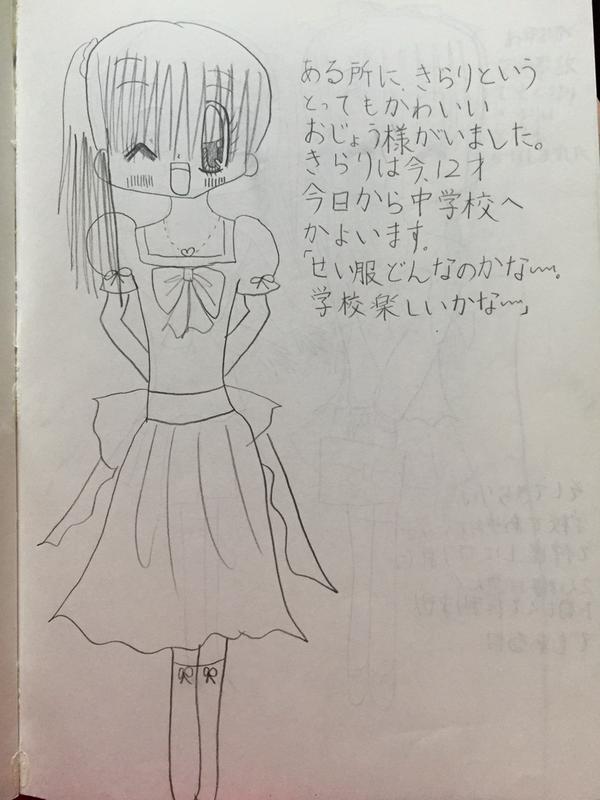 ある所に、きらりという
とってもかわいい
おじょう様がいました。
きらりは今、12才
今日から中学校へ
かよいます。
「せい服どんなのかな〜〜。
学校楽しいかな〜〜」